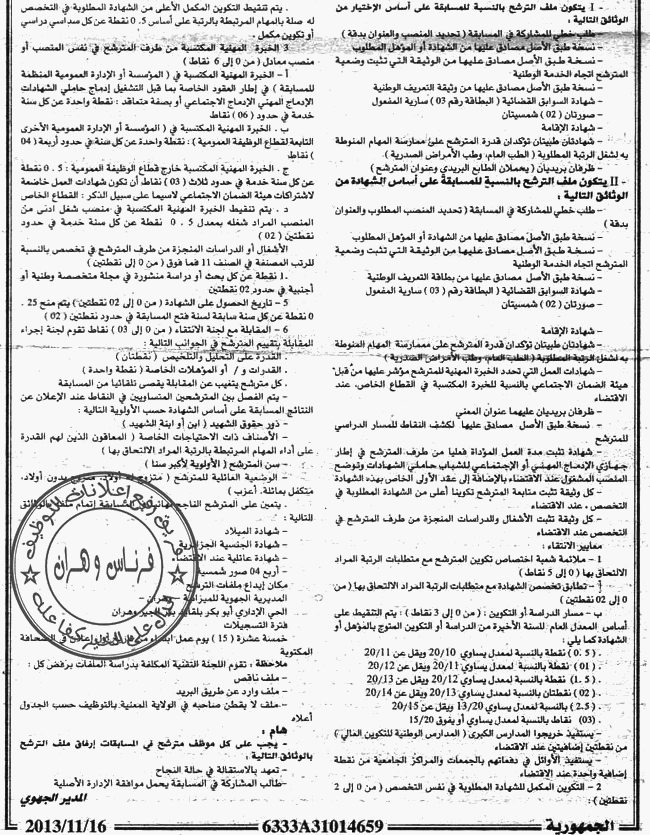 - I يتكون ملف الترشح بالنسبة للمسابقة على أساس الإختبار من
الوثائق التالية :
طلب خطي للمشاركة في المسابقة ( تحديد المنصب والعنوان بدقة )
- نسخة طبق الأصل مصادق عليها من الشهادة أو المؤهل المطلوب
- نسخة طبق الأصل مصادق عليها من الوثيقة التي تثبت وضعية
المترشح اتجاه الخدمة الوطنية
- نسخة طبق الأصل مصادق عليها من وثيقة التعريف الوطنية
- شهادة السوابق القضائية ( البطاقة رقم 03 ) سارية المفعول
- صورتان ( 02 ) شمسيتان
- شهادة الإقامة
- شهادتان طبيتان تؤكدان قدرة المترشح على ممارسة المهام المنوطة
به لشغل الرتبة المطلوبة ( الطب العام، وطب الأمراض الصدرية ) .
- ظرفان بريديان ( يحملان الطابع البريدي وعنوان المترشح )
- II يتكون ملف الترشح بالنسبة للمسابقة على أساس الشهادة من
الوثائق التالية :
- طلب خطي للمشاركة في المسابقة ( تحديد المنصب المطلوب والعنوان
بدقة )
- نسخة طبق الأصل مصادق عليها من الشهادة أو المؤهل المطلوب
- نسخة طبق الأصل مصادق عليها من الوثيقة التي تثبت وضعية
المترشح اتجاه الخدمة الوطنية
- نسخة طبق الأصل مصادق عليها من بطاقة التعريف الوطنية
- شهادة السوابق القضائية ( البطاقة رقم 03 ) سارية المفعول
- صورتان ( 02 ) شمسيتان
- شهادة الإقامة
- شهادتان طبيتان تؤكدان قدرة المترشح على ممارسة المهام المنوطة
به لشغل الرتبة المطلوبة ( الطب العام، وطب الأمراض الصدرية )
- شهادات العمل التي تحدد الخبرة المهنية للمترشح مؤشر عليها من قبل
هيئة الضمان الاجتماعي بالنسبة للخبرة المكتسبة في القطاع الخاص، عند
الاقتضاء
- ظرفان بريديان عليهما عنوان المعني
- نسخة طبق الأصل مصادق عليها لكشف النقاط للمسار الدراسي
للمترشح
- شهادة تثبت مدة العمل المؤداة فعليا من طرف المترشح في إطار
جهازي الإدماج المهني أو الإجتماعي للشباب حاملي الشهادات وتوضح
المنصب المشغول عند الاقتضاء بالإضافة إلى عقد الأول الخاص بهذه الشهادة
- كل وثيقة تثبت متابعة المترشح تكوينا أعلى من الشهادة المطلوبة في
التخصص ، عند الاقتضاء
- كل وثيقة تثبت الأشغال والدراسات المنجزة من طرف المترشح في
التخصص عند الاقتضاء
معايير الانتقاء :
1 - ملائمة شعبة اختصاص تكوين المترشح مع متطلبات الرتبة المراد
الالتحاق بها ( 0 إلى 5 نقاط )
أ - تطابق تخصص الشهادة مع متطلبات الرتبة المراد الالتحاق بها ( من
0 إلى 02 نقطتين )
ب - مسار الدراسة أو التكوين : ( من 0 إلى 3 نقاط ) : يتم التنقيط على
أساس المعدل العام للسنة الأخيرة من الدراسة أو التكوين المتوج بالمؤهل أو
الشهادة كما يلي :
- ( 0.5 ) نقطة بالنسبة لمعدل يساوي 20/10 ويقل عن 20/11
- ( 01 ) نقطة بالنسبة لمعدل يساوي 20/11 ويقل عن 20/12
- ( 1.5 ) نقطة بالنسبة لمعدل يساوي 20/12 ويقل عن 20/13
- ( 02 ) نقطتان بالنسبة لمعدل يساوي 20/13 ويقل عن 20/14
- ( 2.5 ) بالنسبة لمعدل يساوي 13/20 ويقل عن 20/15
- (03) نقاط بالنسبة لمعدل يساوي أو يفوق 15/20
- يستفيد خريجوا المدارس الكبرى ( المدارس الوطنية للتكوين العالي )
من نقطتين إضافيتين عند الاقتضاء
- يستفيد الأوائل في دفعاتهم بالجامعات والمراكز الجامعية من نقطة
إضافية واحدة عند الاقتضاء
2 - التكوين المكمل للشهادة المطلوبة في نفس التخصص ( من 0 إلى 2
نقطتين ) :
. يتم تنقيط التكوين المكمل الأعلى من الشهادة المطلوبة في التخصص
له صلة بالمهام المرتبطة بالرتبة على أساس 0.5 نقطة عن كل سداسي دراسي
أو تكوين مكمل .
3 الخبرة المهنية المكتسبة من طرف المترشح في نفس المنصب أو
منصب معادل ( من 0 إلى 6 نقاط )
أ - الخبرة المهنية المكتسبة في ( المؤسسة أو الإدارة العمومية المنظمة
للمسابقة ) في إطار العقود الخاصة بما قبل التشغيل إدماج حاملي الشهادات
الإدماج المهني الإدماج الاجتماعي أو بصفة متعاقد : نقطة واحدة عن كل سنة
خدمة في حدود ( 06 ) نقاط
ب . الخبرة المهنية المكتسبة في ( المؤسسة أو الإدارة العمومية الأخرى
التابعة لقطاع الوظيفة العمومية ) : نقطة واحدة عن كل سنة في حدود أربعة ( 04 )
نقاط
ج . الخبرة المهنية المكتسبة خارج قطاع الوظيفة العمومية : 0.5 نقطة
عن كل سنة خدمة في حدود ثلاث ( 03 ) نقاط أن تكون شهادات العمل خاضعة
لاشتراكات هيئة الضمان الاجتماعي لاسيما على سبيل الذكر : القطاع الخاص
د . يتم تنقيط الخبرة المهنية المكتسبة في منصب شغل أدنى من
المنصب المراد شغله بمعدل 0.5 نقطة عن كل سنة خدمة في حدود
نقطتين ( 02 )
الأشغال أو الدراسات المنجزة من طرف المترشح في تخصص بالنسبة
للرتب المصنفة في الصنف 11 فما فوق ( من 0 إلى نقطتين )
.1 نقطة عن كل بحث أو دراسة منشورة في مجلة متخصصة وطنية أو
أجنبية في حدود 02 نقطتين
5 - تاريخ الحصول على الشهادة ( من 0 إلى 02 نقطتين ) يتم منح 25.
0 نقطة عن كل سنة سابقة لسنة فتح المسابقة في حدود نقطتين ( 02 )
6 - المقابلة مع لجنة الانتقاء ( من 0 إلى 03 ) نقاط تقوم لجنة إجراء
المقابلة بتقييم المترشح في الجوانب التالية :
. القدرة على التحليل والتلخيص ( نقطتان )
. القدرات و / أو المؤهلات الخاصة ( نقطة واحدة )
. كل مترشح يتغيب عن المقابلة يقصى تلقائيا من المسابقة
- يتم الفصل بين المترشحين المتساويين في النقاط عند الإعلان عن
النتائج المسابقة على أساس الشهادة حسب الأولوية التالية :
- ذوي حقوق الشهيد ( ابن أو ابنة الشهيد )
- الأصناف ذات الاحتياجات الخاصة ( المعاقون الذين لهم القدرة
على أداء المهام المرتبطة بالرتبة المراد الالتحاق بها )
- سن المترشح ( الأولوية لأكبر سنا )
- الوضعية العائلية للمترشح ( متزوج له أولاد، متزوج بدون أولاد،
متكفل بعائلة، أعزب )
. يتعين على المترشح الناجح نهائيا في المسابقة إتمام ملفه بالوثائق
التالية :
- شهادة الميلاد
- شهادة الجنسية الجزائرية
- شهادة عائلية عند الاقتضاء
- أربع 04 صور شمسية
مكان إيداع ملفات الترشح
المديرية الجهوية للميزانية - وهران -
الحي الإداري أبو بكر بلقايد بئر الجير وهران
فترة التسجيلات
خمسة عشرة ( 15 ) يوم عمل ابتداء من تاريخ أول إعلان في الصحافة
المكتوبة
ملاحظة : تقوم اللجنة التقنية المكلفة بدراسة الملفات برفض كل :
- ملف ناقص
- ملف وارد عن طريق البريد
- ملف لا يقطن صاحبه في الولاية المعنية بالتوظيف حسب الجدول
أعلاه
هام :
- يجب على كل موظف مترشح في المسابقات إرفاق ملف الترشح
بالوثائق التالية :
- تعهد بالاستقالة في حالة النجاح
- طالب المشاركة في المسابقة يحمل موافقة الإدارة الأصلية
المدير الجهوي
فرناس وهران
الجمهورية
6333A31014659
2013/11/16